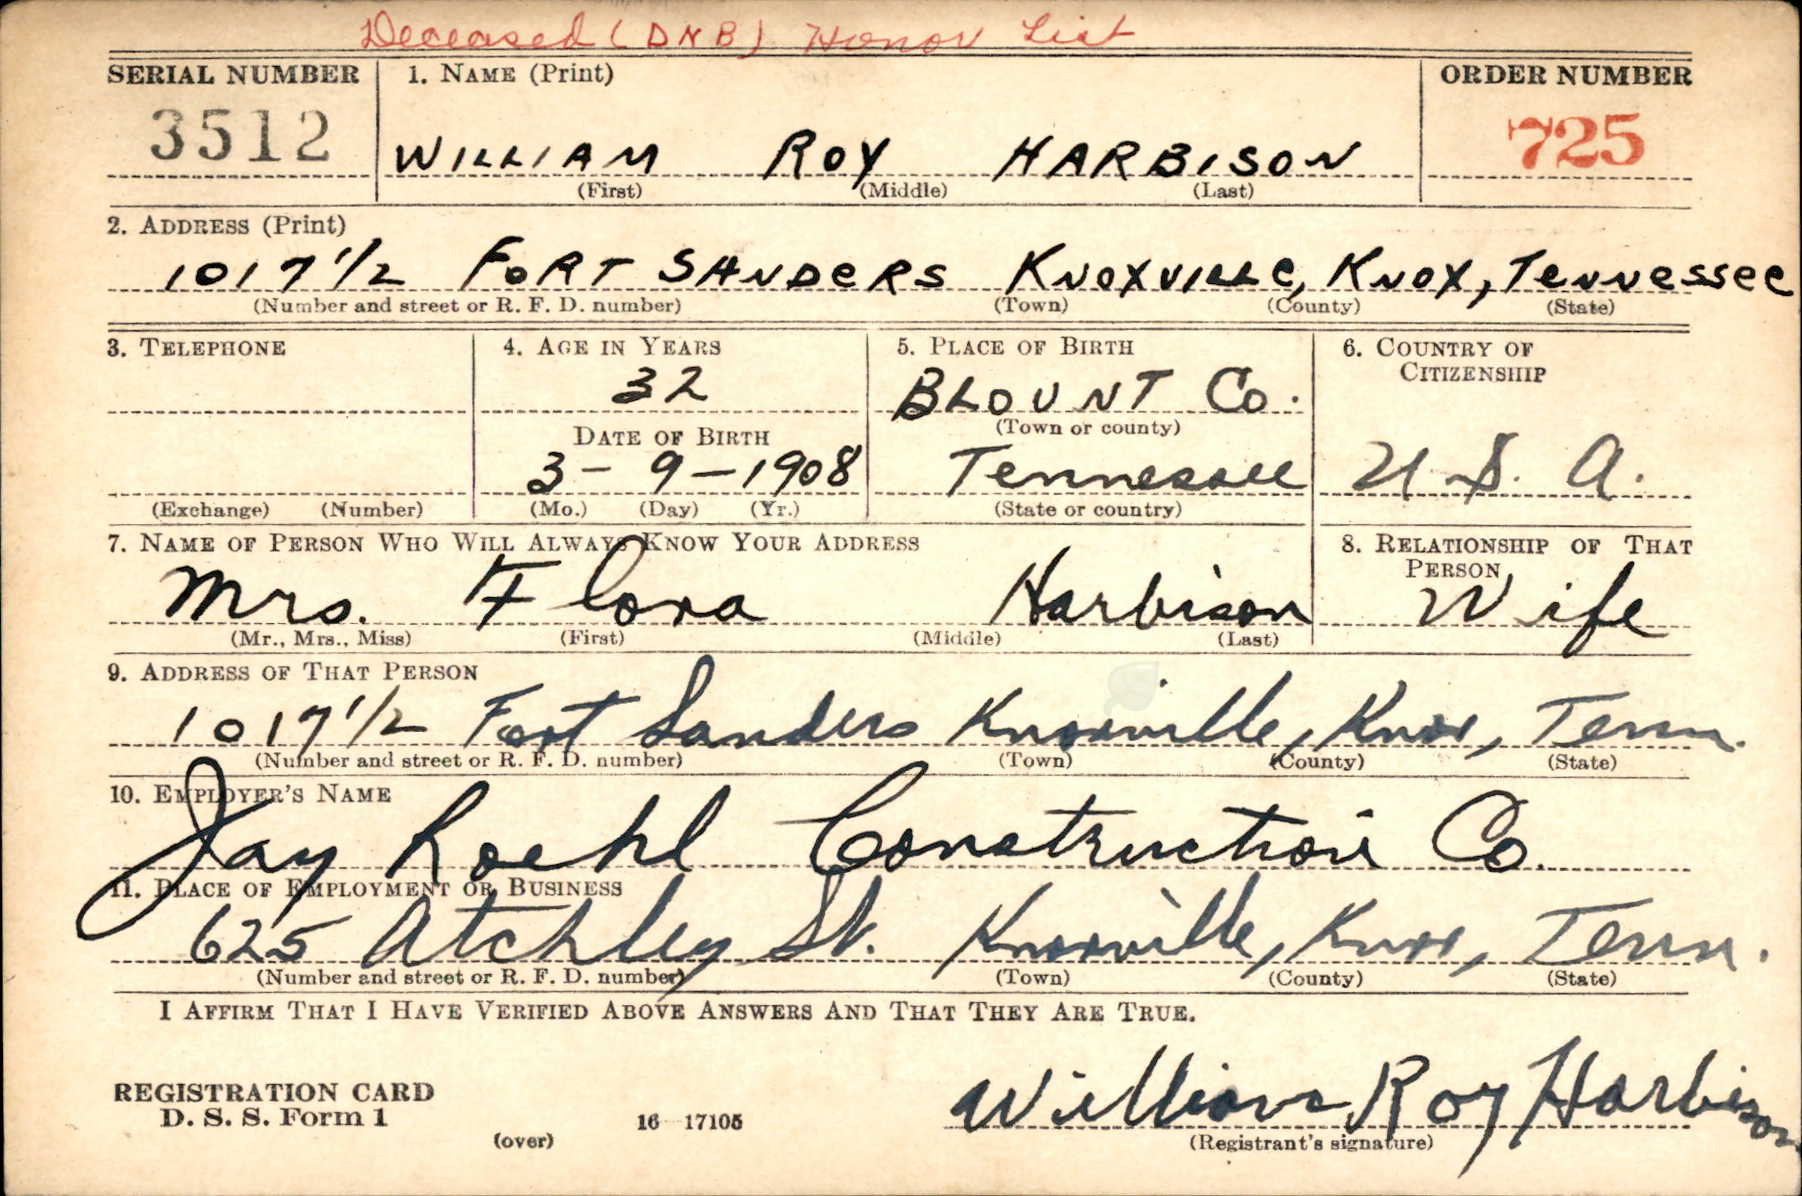 Deceased (DNB) Honor List
SERIAL NUMBER
1. NAME (Print)
ORDER NUMBER
3512
WILLIAM ROY HARBISON
725
(First) (Middle) (Last)
2. ADDRESS (Print)
1017 1/2 FORT SANDERS KNOXVILLE, KNOX, TENNESSEE
(Number and street or R. F. D. number) (Town) (County) (State)
3. TELEPHONE
4. AGE IN YEARS
5. PLACE OF BIRTH
6. COUNTRY OF
CITIZENSHIP
32
BLOUNT Co.
(Town or county)
DATE OF BIRTH
3-9-1908
Tennessee
U.S.A.
(Exchange) (Number)
(Mo.) (Day) (Yr.)
(State or country)
7. NAME OF PERSON WHO WILL ALWAYS KNOW YOUR ADDRESS
8. RELATIONSHIP OF THAT
PERSON
Mrs. Flora Harbison
Wife
(Mr., Mrs., Miss) (First) (Middle) (Last)
9. ADDRESS OF THAT PERSON
1017 1/2 Fort Sanders Knoxville, Knox, Tenn.
(Number and street or R. F. D. number) (Town) (County) (State)
10. EMPLOYER'S NAME
Jay Roehl Construction Co.
11. PLACE OF EMPLOYMENT OR BUSINESS
625 Atchley St. Knoxville, Knox, Tenn.
(Number and street or R. F. D. number) (Town) (County) (State)
I AFFIRM THAT I HAVE VERIFIED ABOVE ANSWERS AND THAT THEY ARE TRUE.
REGISTRATION CARD
D. S. S. Form 1
16—17105
(over)
William Roy Harbison
(Registrant's signature)